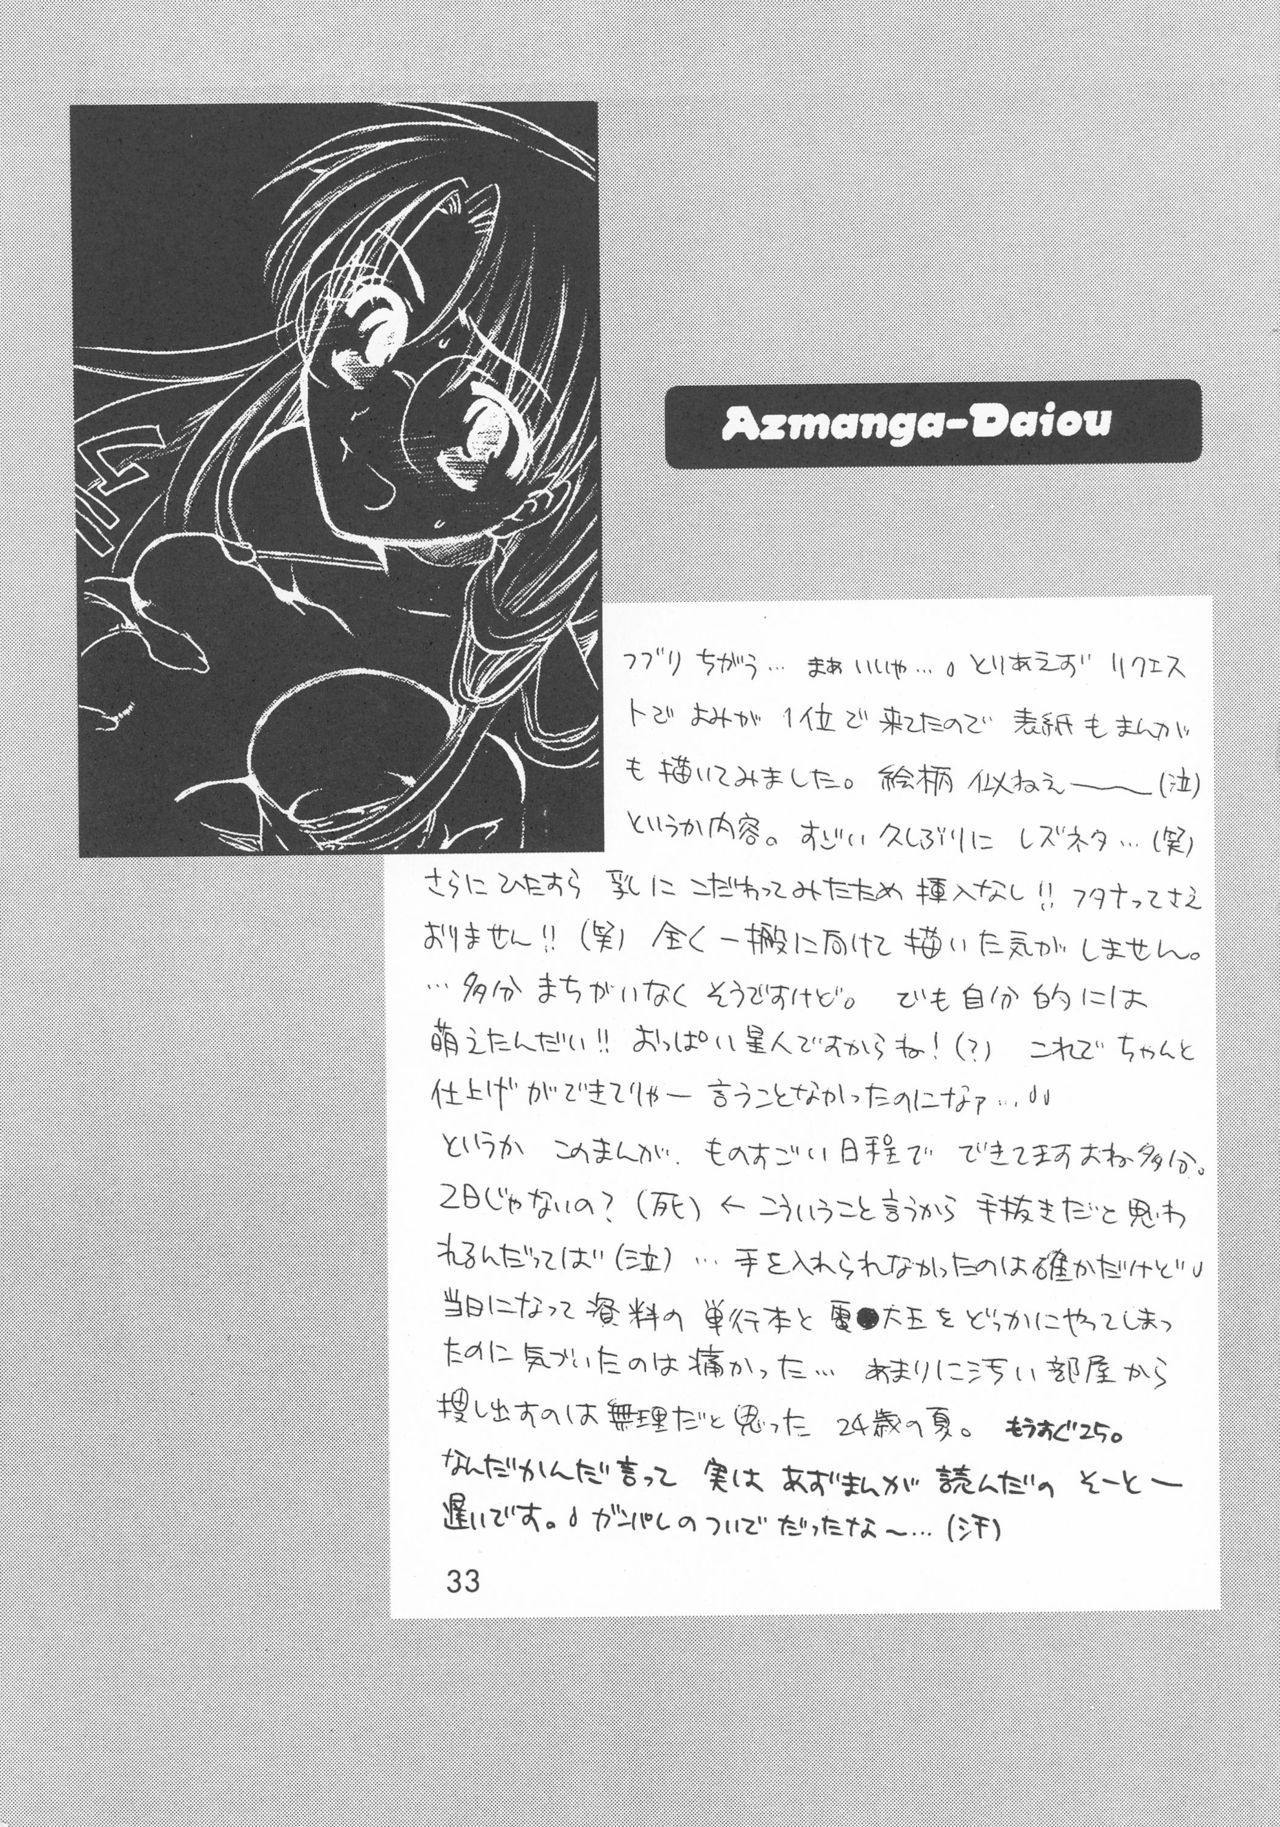 Azmanga-Daiou
ツブリちがう… まぁいいや…。とりあえず リクエス
トで よみが 1位で 来てたので 表紙も まんが
も 描いてみました。 絵柄 似ねえ――(泣)
というか内容。 すごい久しぶりに レズネタ…(笑)
さらにひたすら 乳に こだわってみたため 挿入なし!! フタナってさえ
おりません!! (笑) 全く一搬に向けて 描いた気が しません。
…多分 まちがいなく そうですけど。 でも自分的には
萌えたんだい!! おっぱい星人ですからね!(?) これで ちゃんと
仕上げができてりゃー 言うことなかったのになァ…
というか このまんが、 ものすごい日程で できてますよね多分。
2日じゃないの?(死) ← こういうこと言うから 手抜きだと思わ
れるんだってば(泣) … 手を入れられなかったのは確かだけど
当日になって 資料の 単行本と 電●大王を どっかにやってしまっ
たのに 気づいたのは 痛かった… あまりに汚い部屋から
捜し出すのは無理だと思った 24歳の夏。 もうすぐ25。
なんだかんだ言って 実は あずまんが 読んだの そーとー
遅いです。 ガンパレのついでだったな〜…(汗)
33